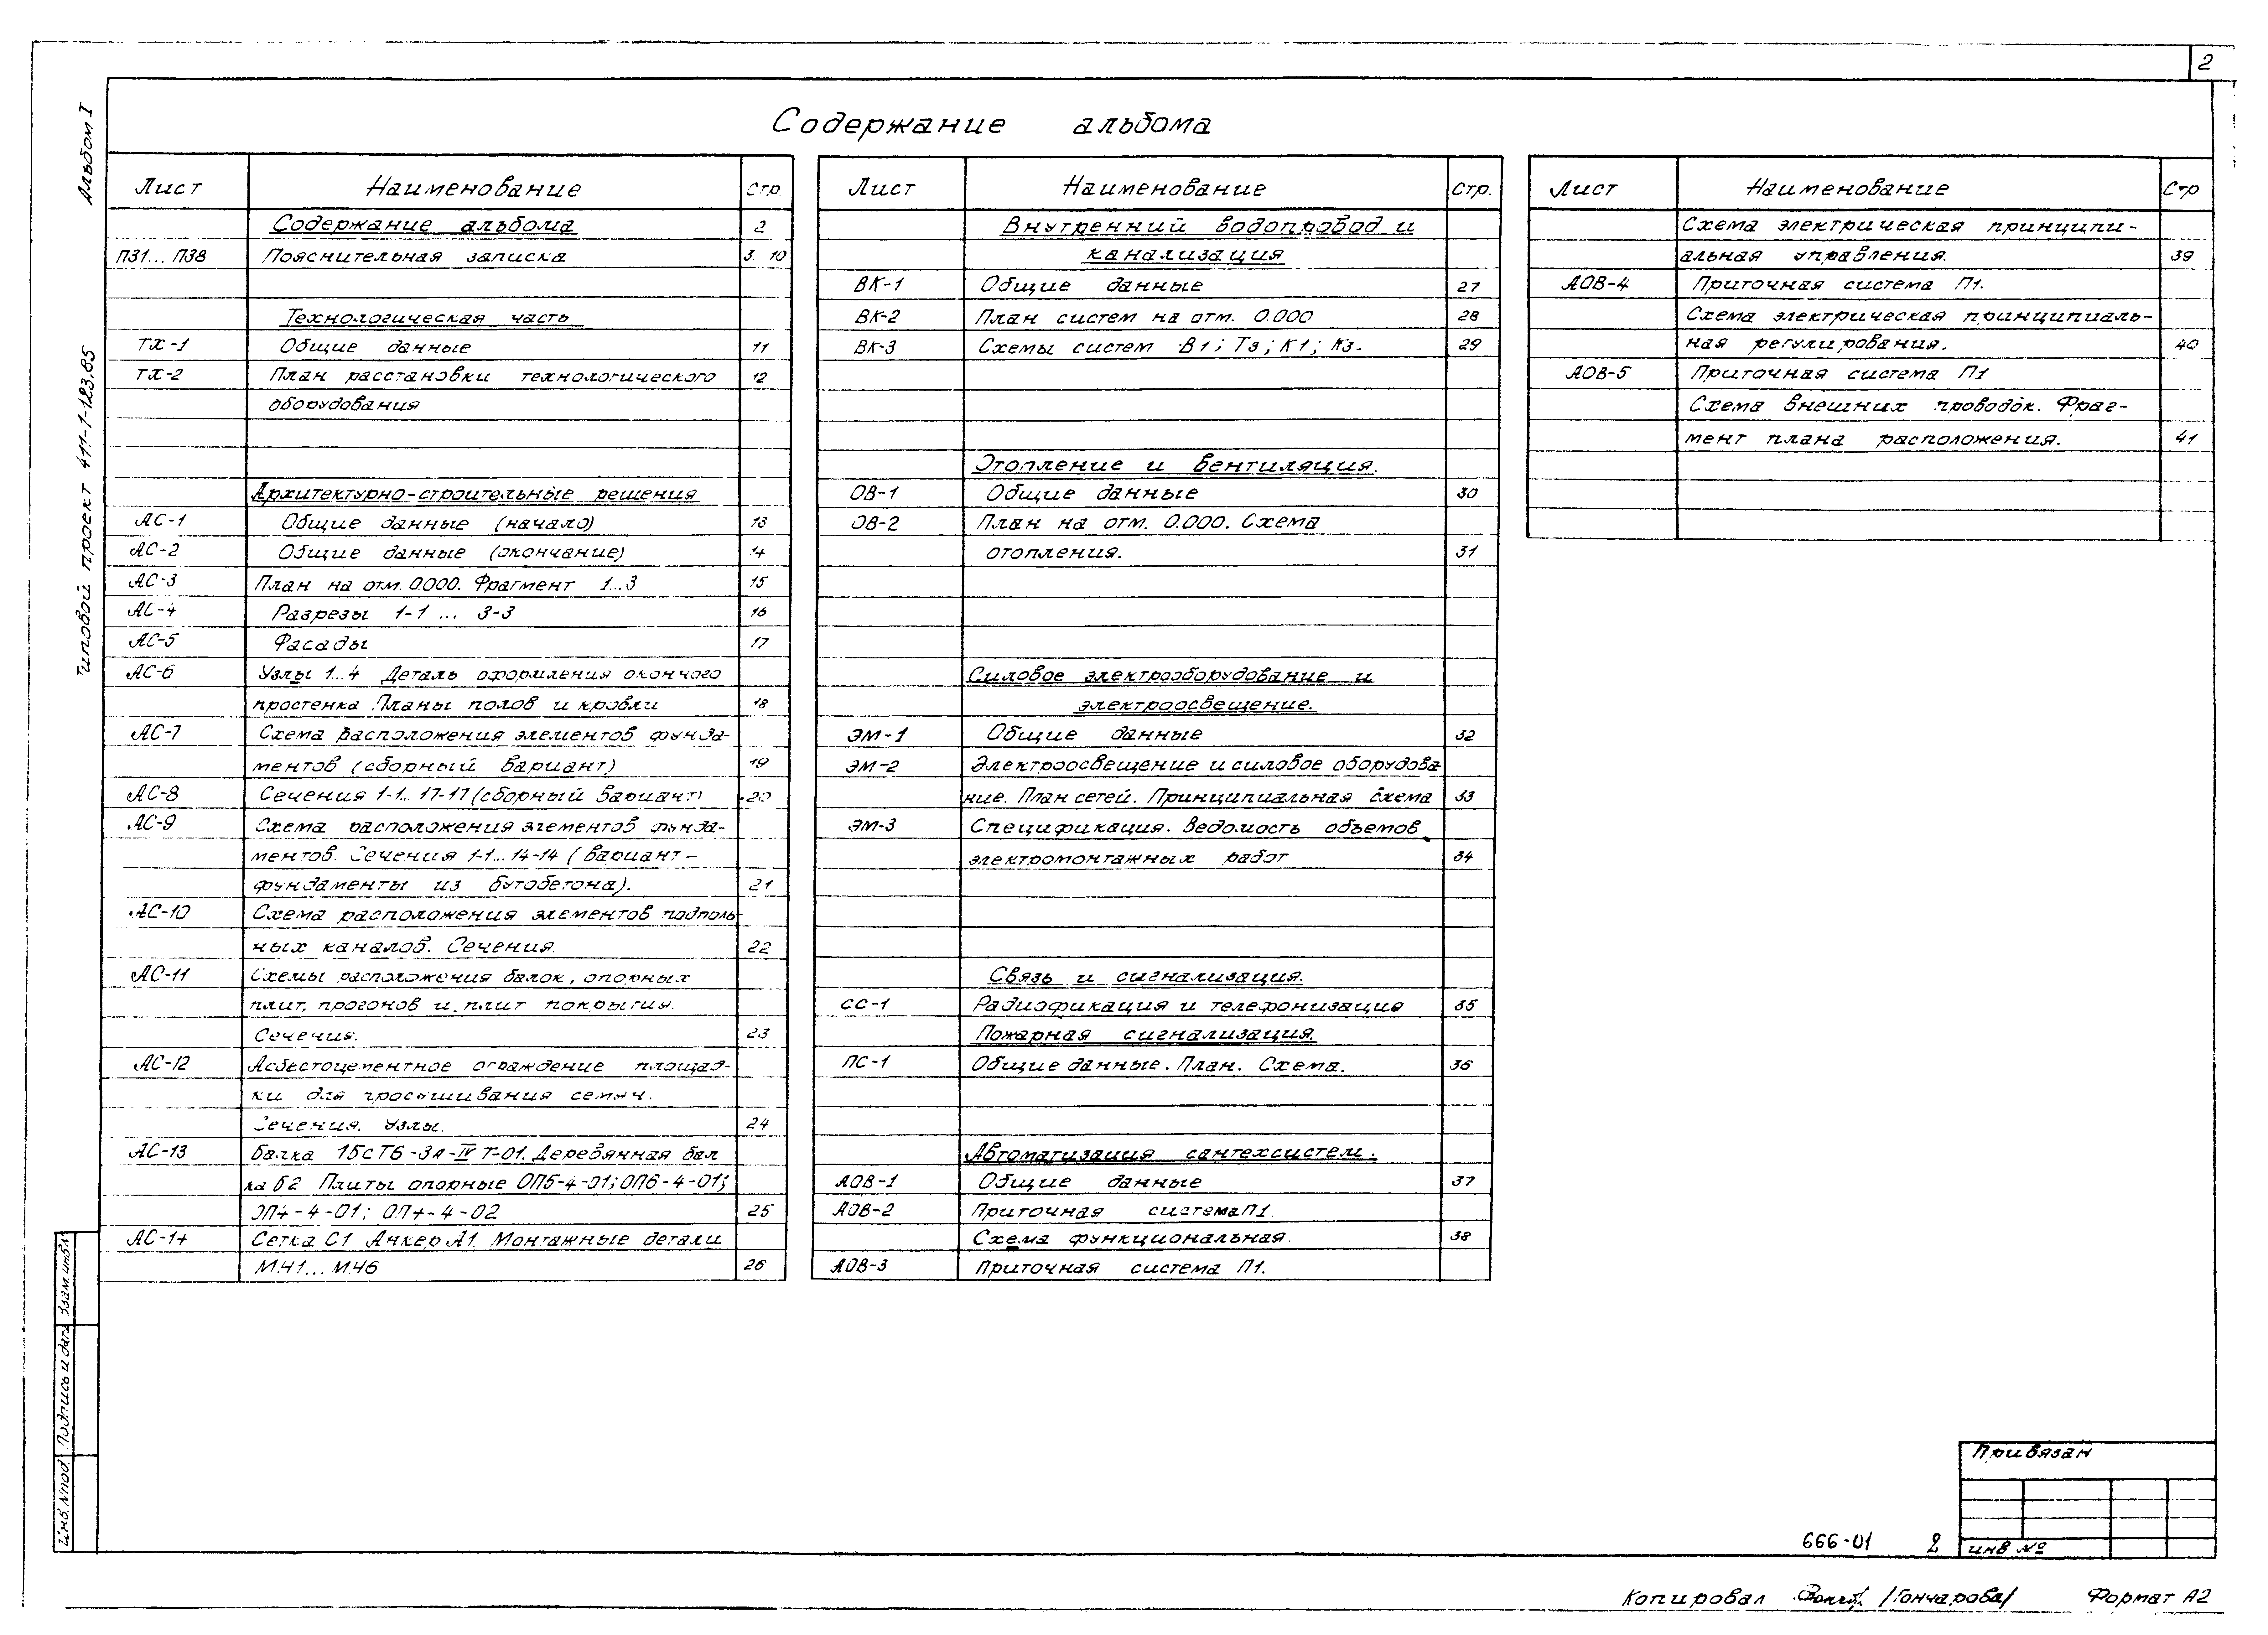 2
Альбом I
Типовой проект 411-1-123.85
Содержание альбома
Лист Наименование Стр.
Содержание альбома 2
ПЗ1...ПЗ8 Пояснительная записка 3. 10
Технологическая часть
ТХ-1 Общие данные 11
ТХ-2 План расстановки технологического 12
оборудования
Архитектурно-строительные решения
АС-1 Общие данные (начало) 13
АС-2 Общие данные (окончание) 14
АС-3 План на отм. 0.000. Фрагмент 1...3 15
АС-4 Разрезы 1-1 ... 3-3 16
АС-5 Фасады 17
АС-6 Узлы 1...4 Деталь оформления оконного
простенка. Планы полов и кровли 18
АС-7 Схема расположения элементов фунда-
ментов (сборный вариант) 19
АС-8 Сечения 1-1... 17-17 (сборный вариант) 20
АС-9 Схема расположения элементов фунда-
ментов. Сечения 1-1... 14-14 (вариант-
фундаменты из бутобетона). 21
АС-10 Схема расположения элементов подполь-
ных каналов. Сечения. 22
АС-11 Схемы расположения балок, опорных
плит, прогонов и плит покрытия.
Сечения. 23
АС-12 Асбестоцементное ограждение площад-
ки для просушивания семян.
Сечения. Узлы. 24
АС-13 Балка 1БсТ6-3А-IV Т-01. Деревянная бал
ка Б2 Плиты опорные ОП5-4-01; ОП6-4-01;
ОП4-4-01; ОП4-4-02 25
АС-14 Сетка С1 Анкер А1. Монтажные детали
МЧ1...МЧ6 26
Лист Наименование Стр.
Внутренний водопровод и
канализация
ВК-1 Общие данные 27
ВК-2 План систем на отм. 0.000 28
ВК-3 Схемы систем В1; Т3; К1; К3. 29
Отопление и вентиляция.
ОВ-1 Общие данные 30
ОВ-2 План на отм. 0.000. Схема
отопления. 31
Силовое электрооборудование и
электроосвещение.
ЭМ-1 Общие данные 32
ЭМ-2 Электроосвещение и силовое оборудова
ние. План сетей. Принципиальная схема 33
ЭМ-3 Спецификация. Ведомость объемов
электромонтажных работ 34
Связь и сигнализация.
СС-1 Радиофикация и телефонизация 35
Пожарная сигнализация.
ПС-1 Общие данные. План. Схема. 36
Автоматизация сантехсистем.
АОВ-1 Общие данные 37
АОВ-2 Приточная система П1.
Схема функциональная. 38
АОВ-3 Приточная система П1.
Лист Наименование Стр
Схема электрическая принципи-
альная управления. 39
АОВ-4 Приточная система П1.
Схема электрическая принципиаль-
ная регулирования. 40
АОВ-5 Приточная система П1
Схема внешних проводок. Фраг-
мент плана расположения. 41
Инв. N под Подпись и дата Взам. инв. N
Привязан
инв №
666-01 2
Копировал /Гончарова/ Формат А2